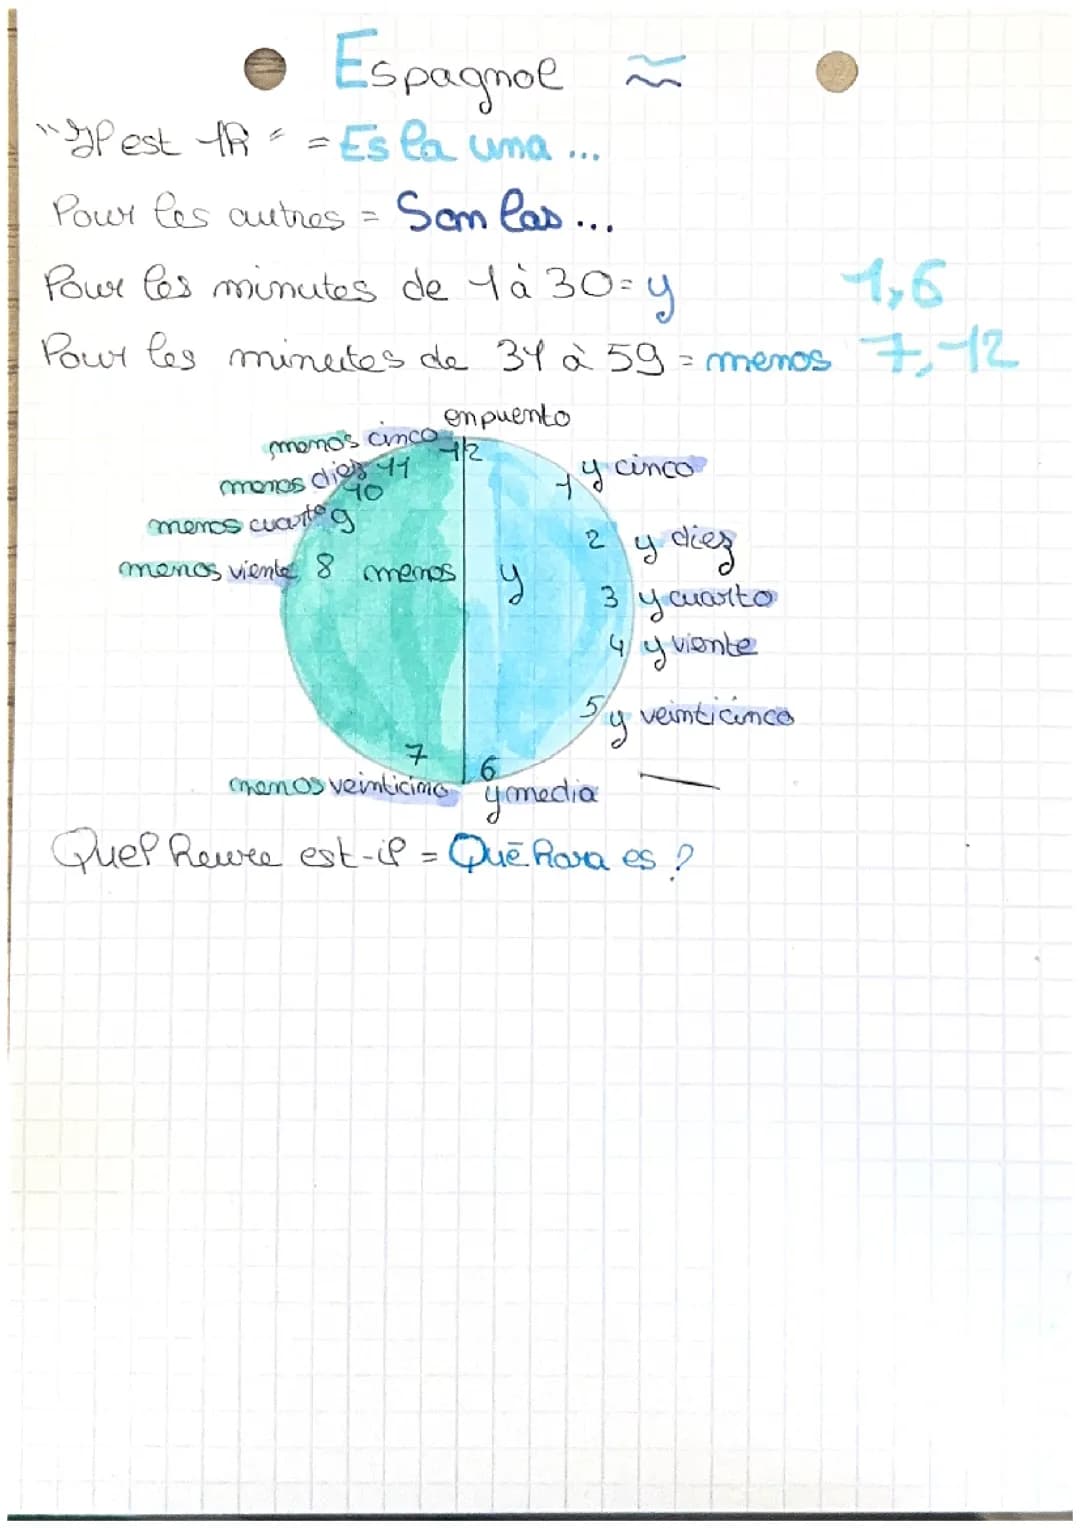 Espagnol
"Il est 1h" = Es la una ...
Pour les autres = Son las ...
Pour les minutes de 1 à 30 = y 1,6
Pour les minutes de 31 à 59 = menos 7,12
en puento
menos cinco 12
menos diez 11
10
y cinco 1
menos cuarto 9
2 y diez
menos viente 8 menos y
3 y cuarto
4 y viente
5 y veinticinco
7 6
menos veinticinco y media
Quel heure est-il = Qué hora es ?